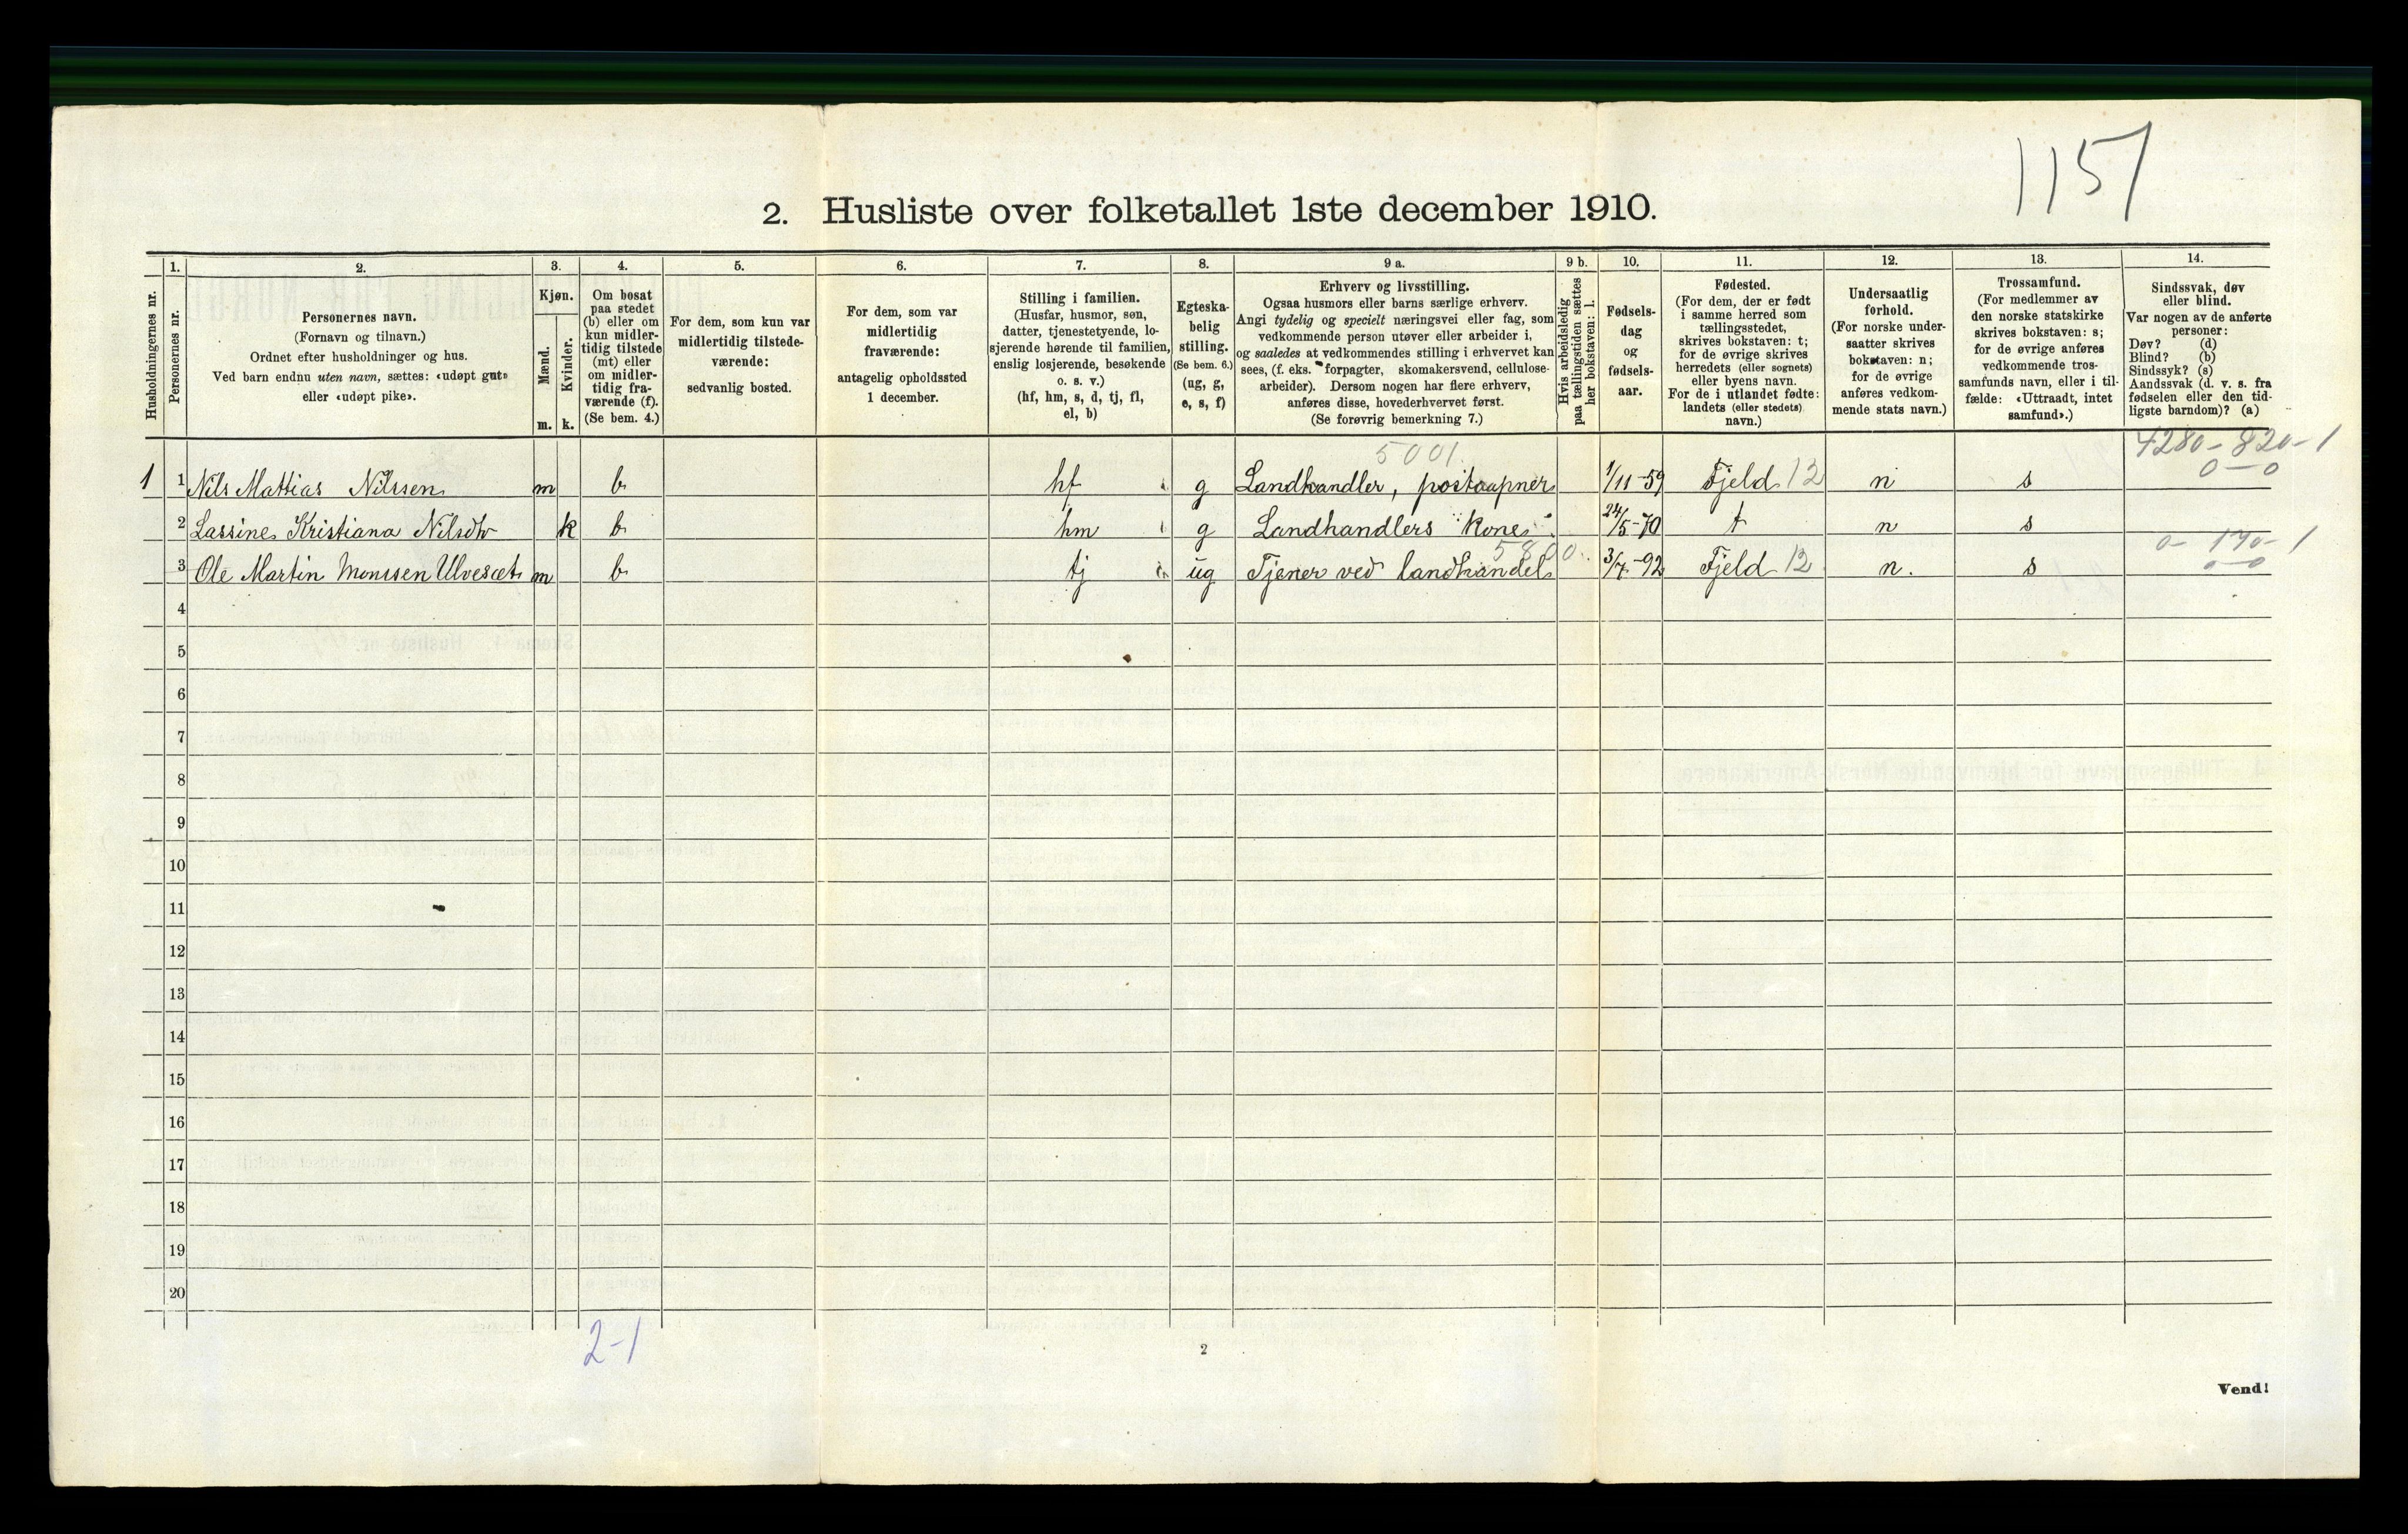 1157
2. Husliste over folketallet 1ste december 1910.
Husholdningernes nr.
1.
Personernes nr.
2.
Personernes navn.
(Fornavn og tilnavn.)
Ordnet efter husholdninger og hus.
Ved barn endnu uten navn, sættes: «udøpt gut»
eller «udøpt pike».
3.
Kjøn.
Mænd.
Kvinder.
m. k.
4.
Om bosat
paa stedet
(b) eller om
kun midler-
tidig tilstede
(mt) eller
om midler-
tidig fra-
værende (f).
(Se bem. 4.)
5.
For dem, som kun var
midlertidig tilstede-
værende:
sedvanlig bosted.
6.
For dem, som var
midlertidig
fraværende:
antagelig opholdssted
1 december.
7.
Stilling i familien.
(Husfar, husmor, søn,
datter, tjenestetyende, lo-
sjerende hørende til familien,
enslig losjerende, besøkende
o. s. v.)
(hf, hm, s, d, tj, fl,
el, b)
8.
Egteska-
belig
stilling.
(Se bem. 6.)
(ug, g,
e, s, f)
9 a.
Erhverv og livsstilling.
Ogsaa husmors eller barns særlige erhverv.
Angi tydelig og specielt næringsvei eller fag, som
vedkommende person utøver eller arbeider i,
og saaledes at vedkommendes stilling i erhvervet kan
sees, (f. eks. forpagter, skomakersvend, cellulose-
arbeider). Dersom nogen har flere erhverv,
anføres disse, hovederhvervet først.
(Se forøvrig bemerkning 7.)
9 b.
Hvis arbeidsledig
paa tællingstiden sættes
her bokstaven: l.
10.
Fødsels-
dag
og
fødsels-
aar.
11.
Fødested.
(For dem, der er født
i samme herred som
tællingsstedet,
skrives bokstaven: t;
for de øvrige skrives
herredets (eller sognets)
eller byens navn.
For de i utlandet fødte:
landets (eller stedets)
navn.)
12.
Undersaatlig
forhold.
(For norske under-
saatter skrives
bokstaven: n;
for de øvrige
anføres vedkom-
mende stats navn.)
13.
Trossamfund.
(For medlemmer av
den norske statskirke
skrives bokstaven: s;
for de øvrige anføres
vedkommende tros-
samfunds navn, eller i til-
fælde: «Uttraadt, intet
samfund».)
14.
Sindssvak, døv
eller blind.
Var nogen av de anførte
personer:
Døv? (d)
Blind? (b)
Sindssyk? (s)
Aandssvak (d. v. s. fra
fødselen eller den tid-
ligste barndom)? (a)
5001. 4280-820-1
0-0
1 1 Nils Mattias Nilssen m b hf g Landhandler, postaapner 1/11-59 Fjeld 12 n s
2 Lassine Kristiana Nilsdtr k b hm g Landhandlers kone 24/5-70 t n s
5800. 0-170-1
0-0
3 Ole Martin Monssen Ulvesæt m b tj ug Tjener ved landhandel 3/7-92 Fjeld 12 n. s
4
5
6
7
8
9
10
11
12
13
14
15
16
17
18
19
20
2-1
2
Vend!